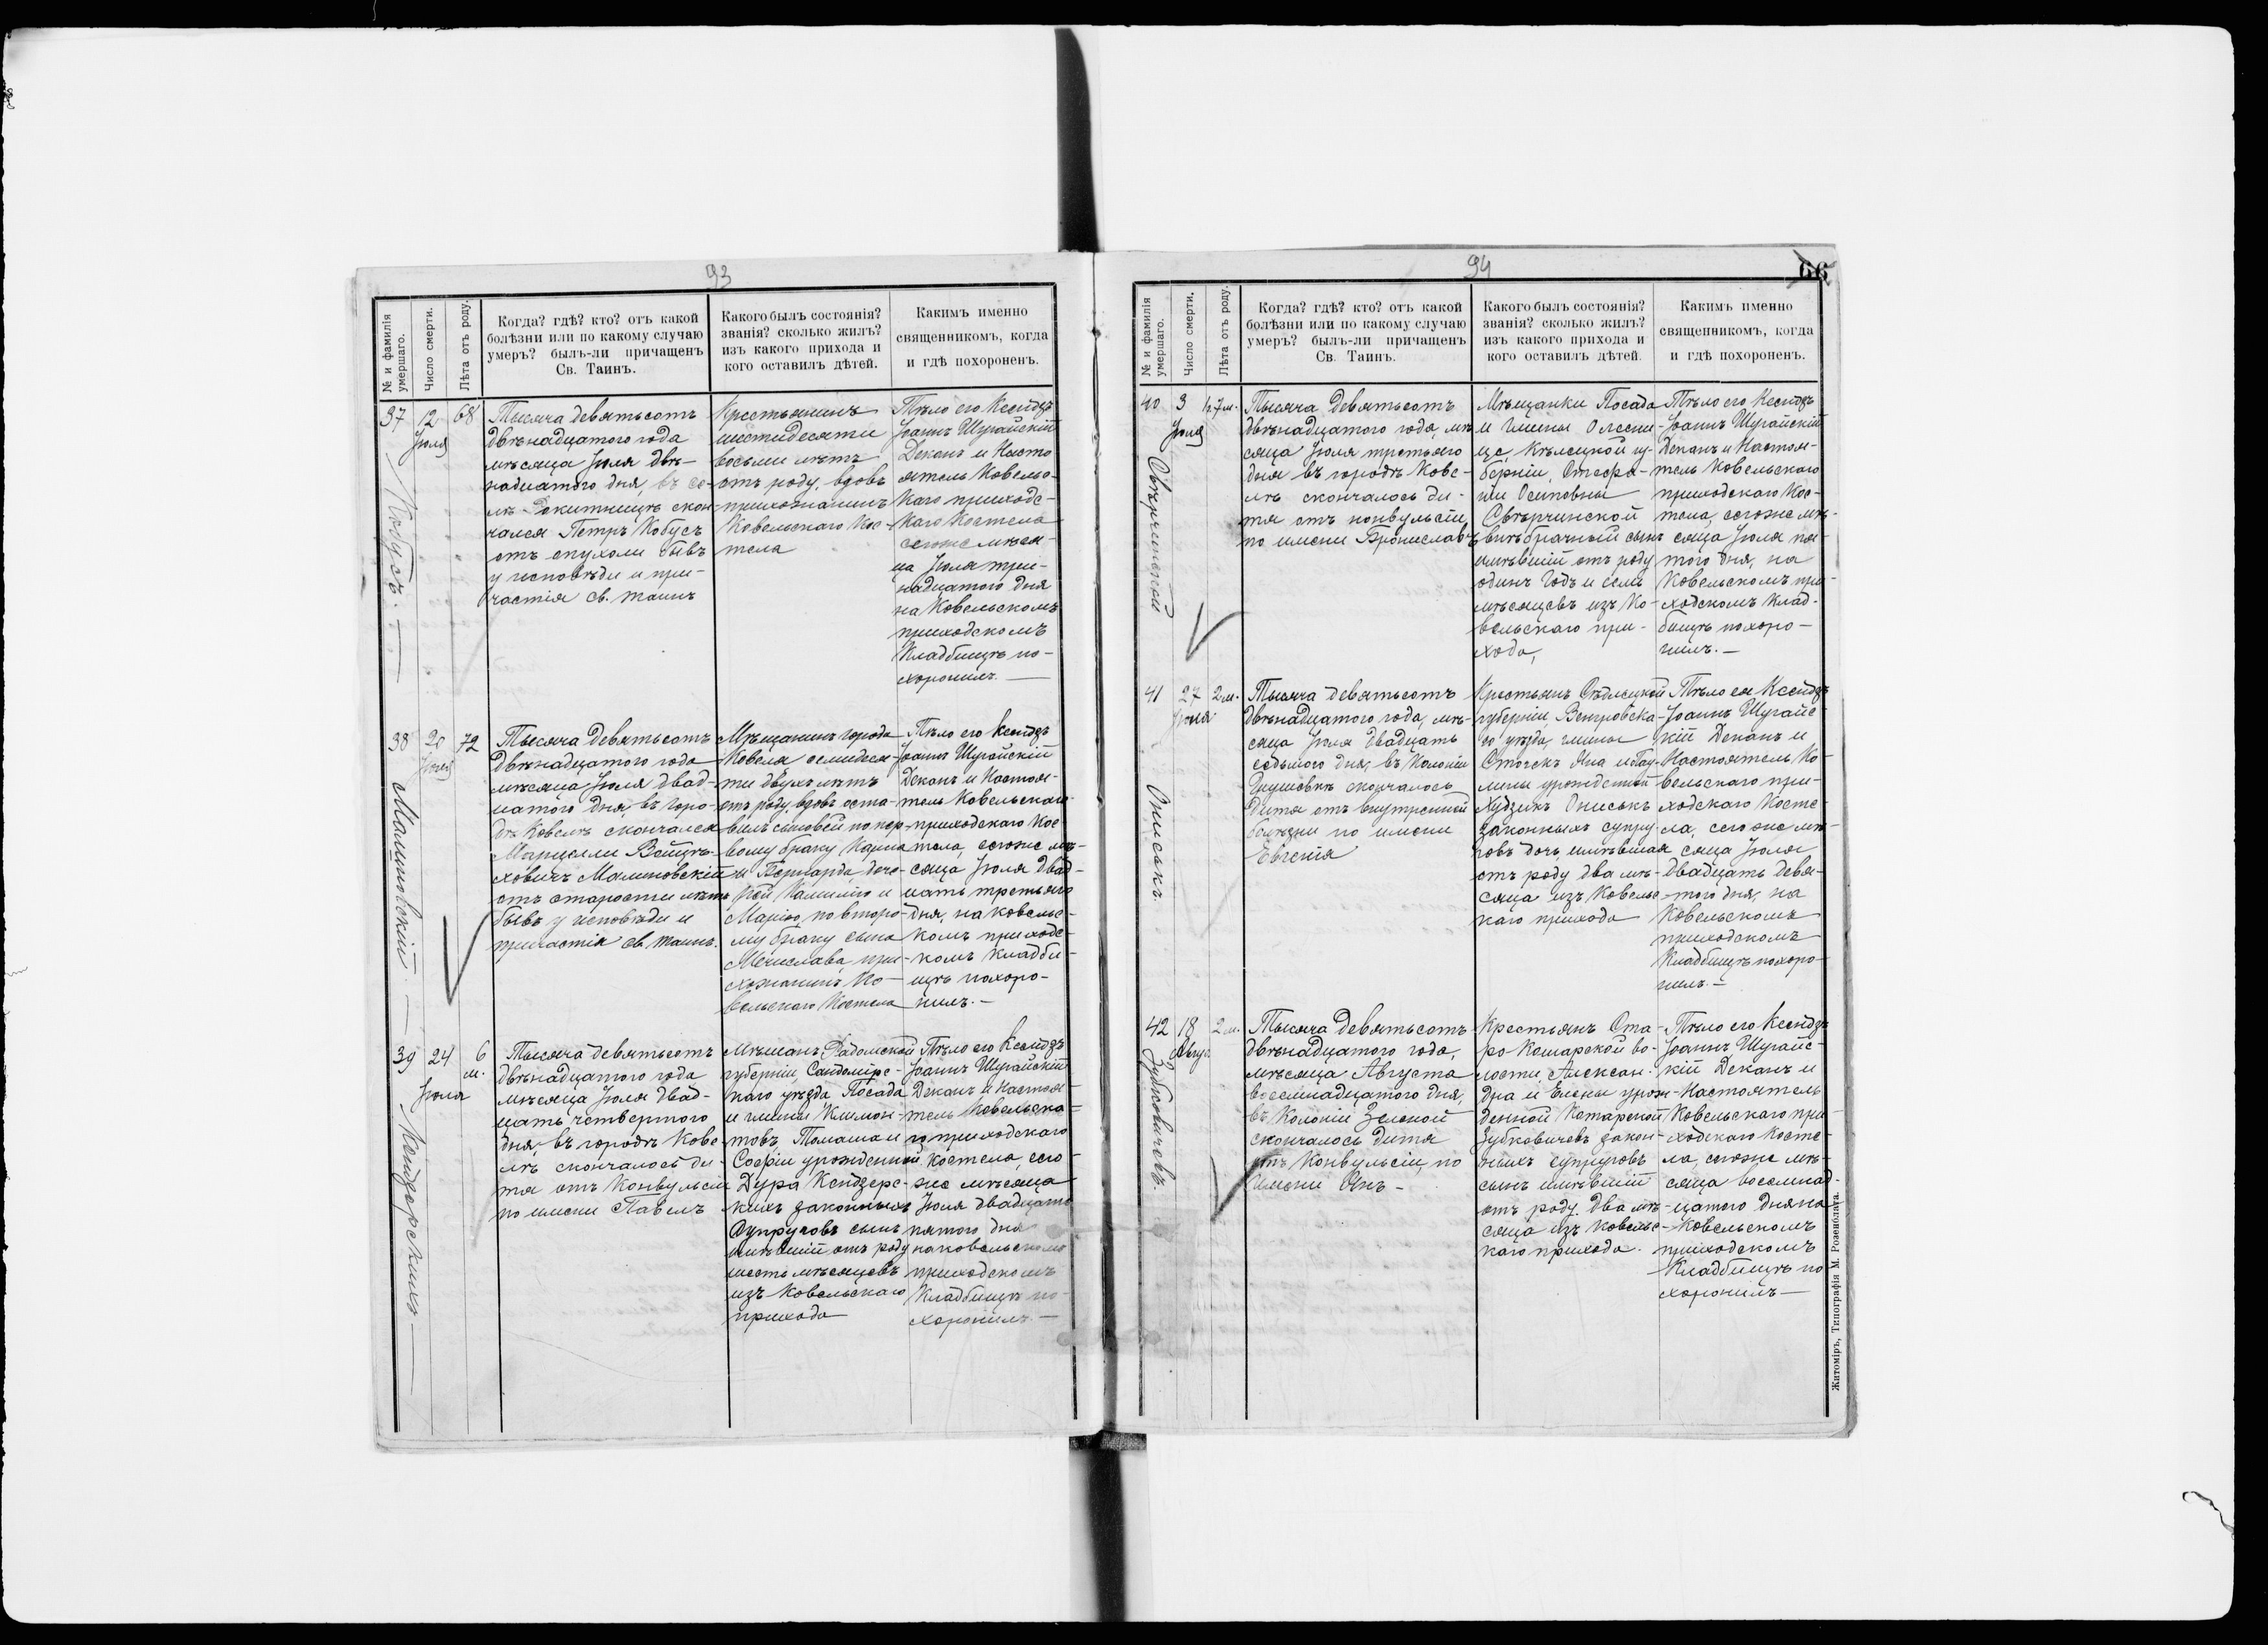 93
№ и фамилія
умершаго.
Число смерти.
Лѣта отъ роду.
Когда? гдѣ? кто? отъ какой
болѣзни или по какому случаю
умеръ? былъ-ли причащенъ
Св. Таинъ.
Какого былъ состоянія?
званія? сколько жилъ?
изъ какого прихода и
кого оставилъ дѣтей.
Какимъ именно
священникомъ, когда
и гдѣ похороненъ.
37
Кобусъ.
12
Іюля
68
Тысяча девятьсотъ
двѣнадцатого года
мѣсяца Іюля двѣ-
надцатого дня, въ се-
лѣ Рокитницѣ скон-
чался Петръ Кобусъ
отъ опухоли бывъ
у исповѣди и при-
частія св. таинъ
Крестьянинъ
шестидесяти
восьми лѣтъ
отъ роду, вдовъ
прихожанинъ
Ковельскаго Кос-
тела
Тѣло его Ксендзъ
Іоаннъ Шугайскій
Деканъ и Насто
ятель Ковельс-
каго приходс-
каго Костела
сегоже мѣся-
ца Іюля три-
надцатого дня
на Ковельскомъ
приходскомъ
Кладбищѣ по-
хоронилъ.
38
Малиновскій
20
Іюля
72
Тысяча девятьсотъ
двѣнадцатого года
мѣсяца Іюля двад-
цатого дня, въ горо-
дѣ Ковелѣ скончался
Марцелли Войцѣ-
ховичъ Малиновскій
отъ старости лѣтъ
бывъ у исповѣди и
причастія св. таинъ.
Мѣщанинъ города
Ковеля семидеся-
ти двухъ лѣтъ
отъ роду, вдовъ оста-
вилъ сыновей по пер-
вому браку
и Бернарда, доче-
рей Камилію и
Марію, по второ-
му браку сына
Мечислава, при-
хожанинъ Ко-
вельскаго Костела
Тѣло его Ксендзъ
Іоаннъ Шугайскій
Деканъ и Настоя-
тель Ковельскаго
приходскаго Кос-
тела, сегоже мѣ-
сяца Іюля двад-
цать третьяго
дня, на Ковельс-
комъ приходс-
комъ кладби-
щѣ похоро-
нилъ.
39
24
Іюля
6
м.
Тысяча девятьсотъ
двѣнадцатого года
мѣсяца Іюля двад-
цать четвертого
дня, въ городѣ Кове-
лѣ скончалось ди-
тя отъ конвульсіи
по имени Павелъ
Мѣщанъ Радомской
губерніи, Сандомірс-
каго уѣзда Посада
и гмины Климон-
товъ, Томаша и
Софіи урожденной
Дура
кихъ законныхъ
супруговъ сынъ
имѣвшій отъ роду
шесть мѣсяцевъ
изъ Ковельскаго
прихода
Тѣло его Ксендзъ
Іоаннъ Шугайскій
Деканъ и Настоя-
тель Ковельска-
го приходскаго
Костела, сего-
же мѣсяца
Іюля двадцать
пятого дня
на Ковельскомъ
приходскомъ
Кладбищѣ по-
хоронилъ.
94
66
№ и фамилія
умершаго.
Число смерти.
Лѣта отъ роду.
Когда? гдѣ? кто? отъ какой
болѣзни или по какому случаю
умеръ? былъ-ли причащенъ
Св. Таинъ.
Какого былъ состоянія?
званія? сколько жилъ?
изъ какого прихода и
кого оставилъ дѣтей.
Какимъ именно
священникомъ, когда
и гдѣ похороненъ.
40
3
Іюля
Тысяча девятьсотъ
двѣнадцатого года, мѣ
сяца Іюля третьяго
дня въ городѣ Кове-
лѣ скончалось ди-
тя отъ конвульсіи,
по имени Брониславъ
Мѣщанки Посада
и Гмины Олесни-
це, Кѣлецкой гу-
берніи, Стефа-
ніи Осиповны
Свѣрчинской
внѣбрачный сынъ
имѣвшій отъ роду
одинъ годъ и семь
мѣсяцевъ изъ Ко-
вельскаго при-
хода,
Тѣло его Ксендзъ
Іоаннъ Шугайскій
Деканъ и Настоя-
тель Ковельскаго
приходскаго Кос-
тела, сегоже мѣ-
сяца Іюля пя-
того дня, на
Ковельскомъ при-
ходскомъ Клад-
бищѣ похоро-
нилъ.
41
Ониськъ.
27
Іюля
2 м.
Тысяча девятьсотъ
двѣнадцатого года, мѣ-
сяца Іюля двадцать
седьмого дня, въ Колоніи
скончалось
дитя отъ внутренней
болѣзни по имени
Евгенія
Крестьянъ Сѣдлецкой
губерніи, Венгровска-
го уѣзда, гмины
Сточекъ Яна и
урожденной
Ониськъ
законныхъ супру-
говъ дочь, имѣвшая
отъ роду два мѣ-
сяца изъ Ковельс-
каго прихода
Тѣло ея Ксендзъ
Іоаннъ Шугайс-
кій Деканъ и
Настоятель Ко-
вельскаго при-
ходскаго Косте-
ла, сегоже мѣ-
сяца Іюля
двадцать девя-
того дня, на
Ковельскомъ
приходскомъ
Кладбищѣ похоро-
нилъ.
42
Зубковичевъ.
18
Авгус.
2 м.
Тысяча девятьсотъ
двѣнадцатого года,
мѣсяца Августа
восемнадцатого дня,
въ Колоніи Зеленой
скончалось дитя
отъ конвульсіи, по
имени Янъ
Крестьянъ Ста-
ро-Кошарской во-
лости, Алексан-
дра и Елены урож-
денной
Зубковичевъ закон-
ныхъ супруговъ
сынъ имѣвшій
отъ роду два мѣ-
сяца изъ Ковельс-
каго прихода.
Тѣло его Ксендзъ
Іоаннъ Шугайс-
кій Деканъ и
Настоятель
Ковельскаго при-
ходскаго Косте-
ла, сегоже мѣ-
сяца восемнад-
цатого дня на
Ковельскомъ
приходскомъ
Кладбищѣ по
хоронилъ
Житоміръ, Типографія М. Розенблата.